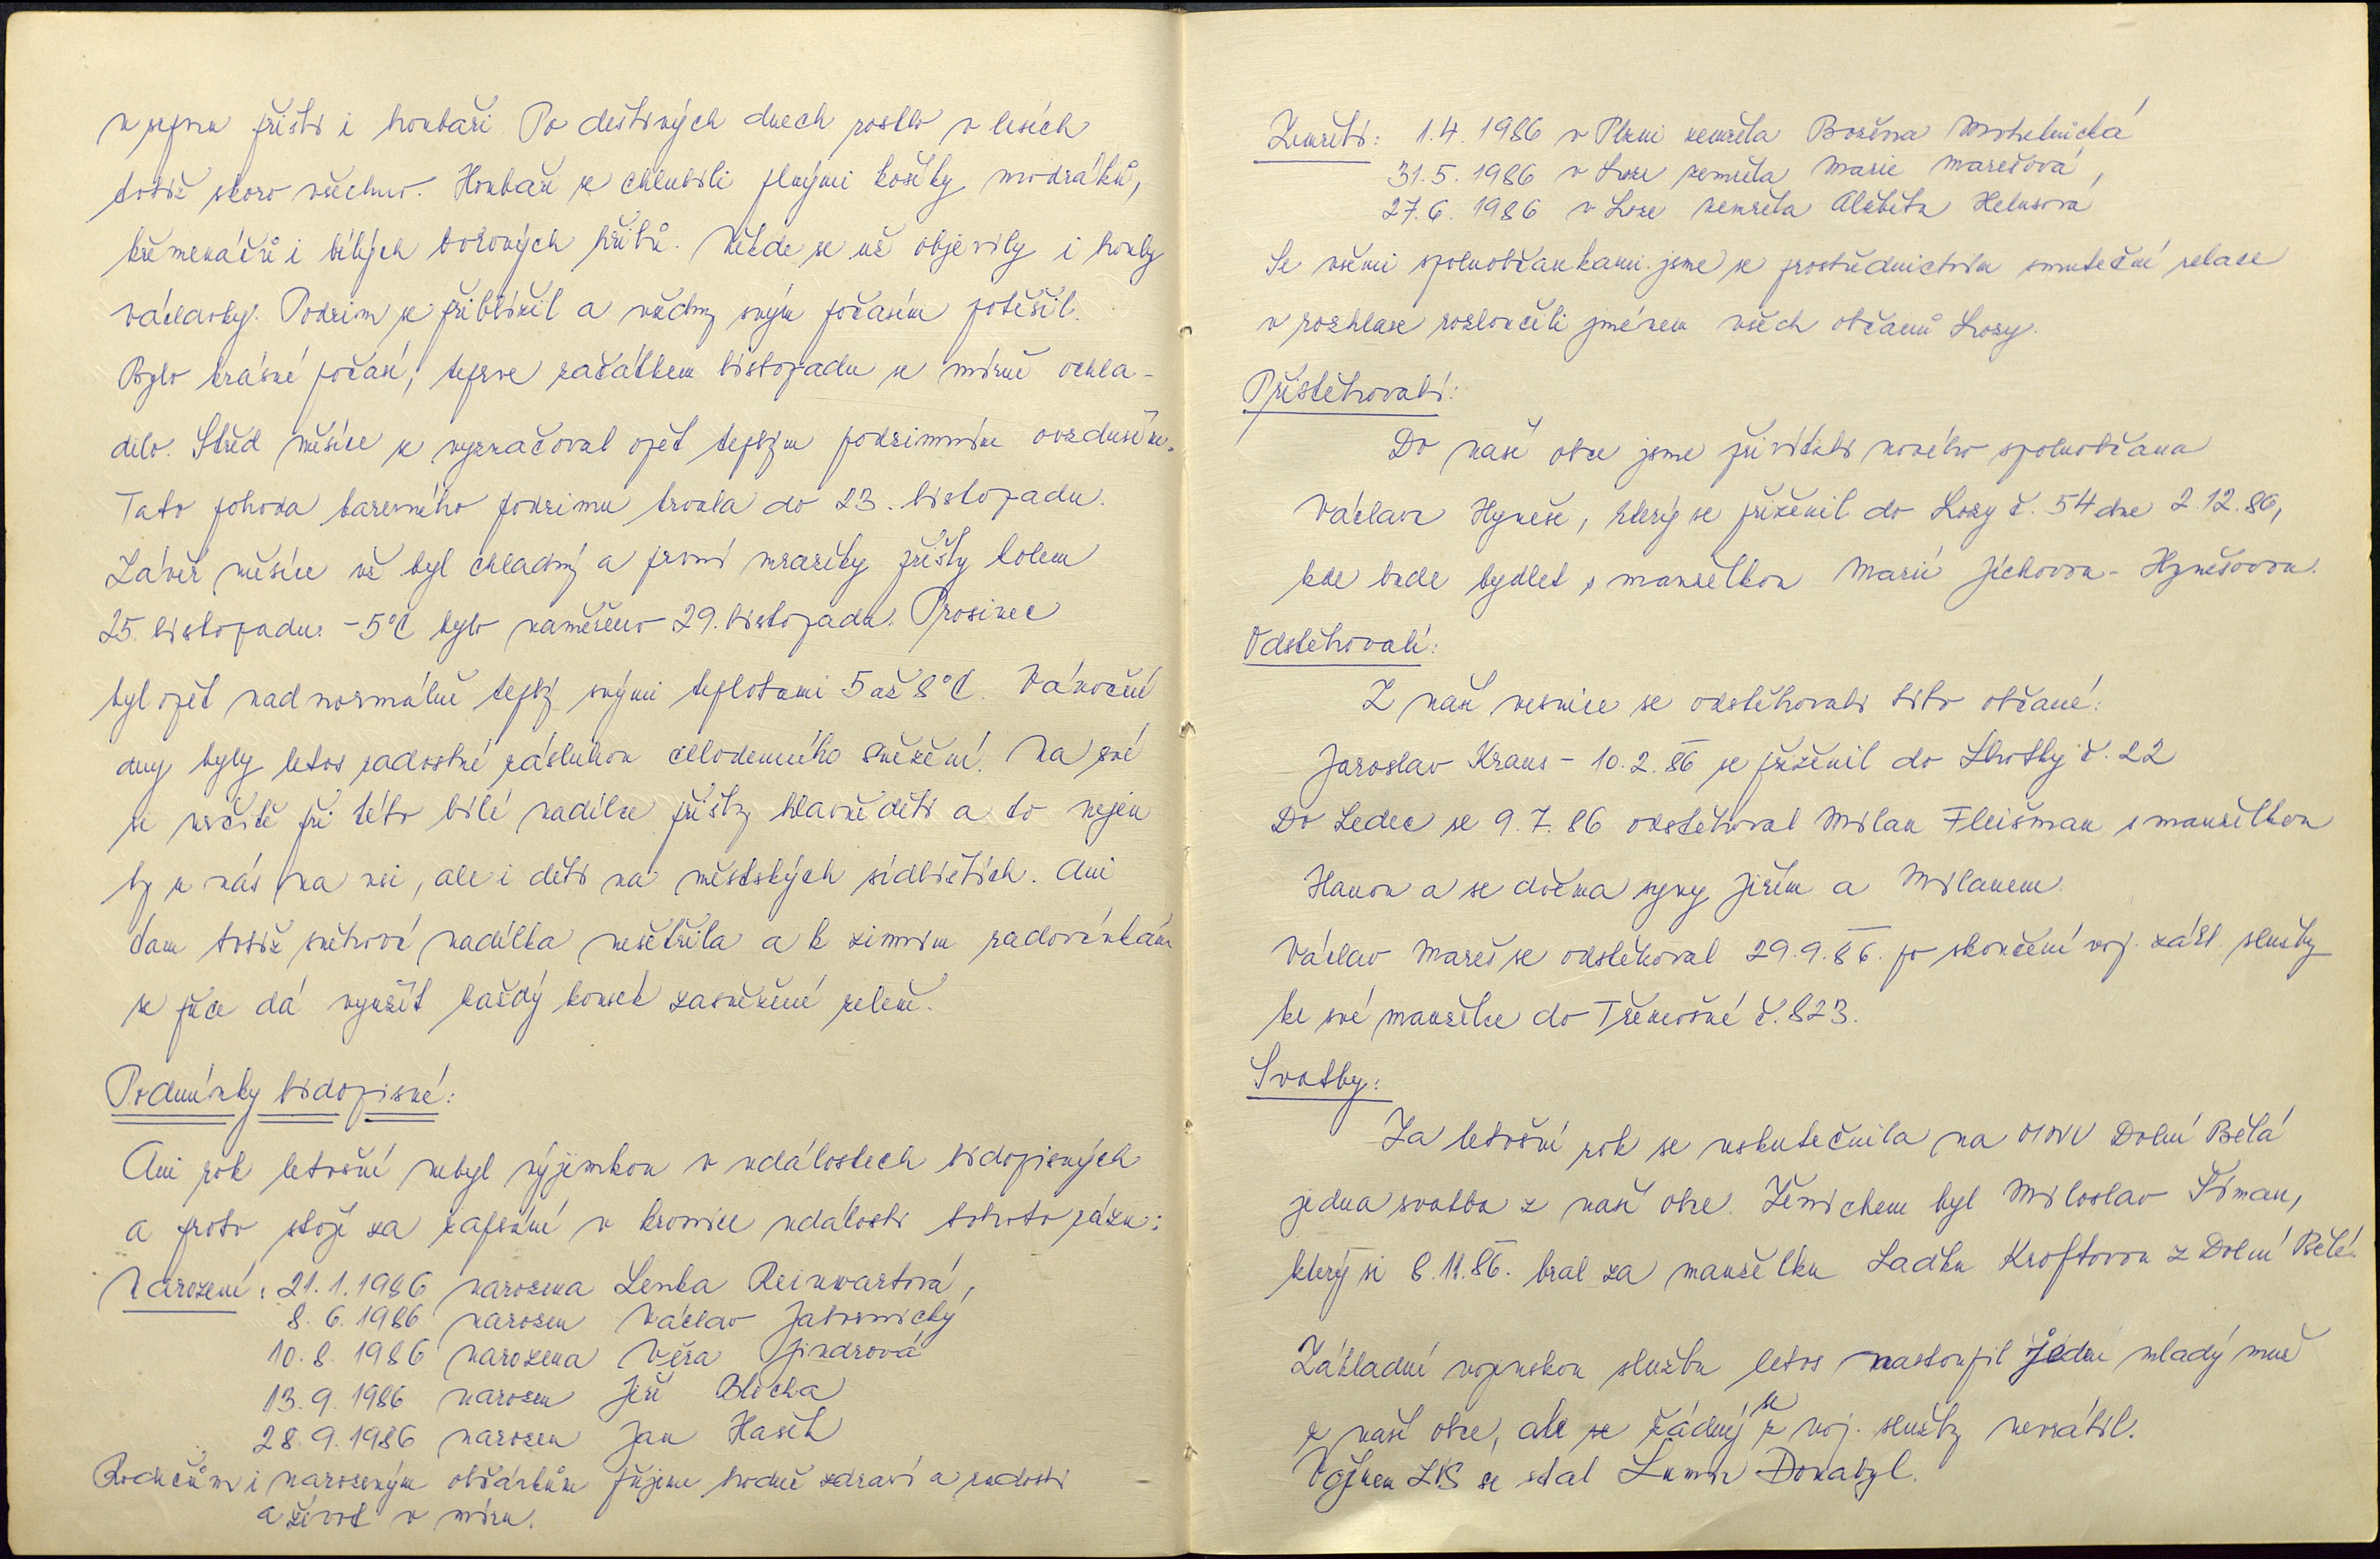 v srpnu přišli i houbaři. Po deštivých dnech rostlo v lesích
totiž skoro všechno. Houbaři se chlubili plnými košíky modráků,
křemenáčů i bílých borových hřibů. Někde se už objevily i houby
václavky. Podzim se přiblížil a všechny svým počasím potěšil.
Bylo krásné počasí, teprve začátkem listopadu se mírně ochla-
dilo. Střed měsíce se vyznačoval opět teplým podzimním ovzduším.
Tato pohoda barevného podzimu trvala do 23. listopadu.
Závěr měsíce už byl chladný a první mrazíky přišly kolem
25. listopadu. -5°C bylo naměřeno 29. listopadu. Prosinec
byl opět nadnormálně teplý svými teplotami 5 až 8°C. Vánoční
dny byly letos radostné zásluhou celodenního sněžení. Na své
si určitě při této bílé nadílce přišly hlavně děti a to nejen
ty u nás na vsi, ale i děti na městských sídlištích. Ani
tam totiž sněhová nadílka nešetřila a k zimním radovánkám
se přece dá využít každý kousek zasněžené zeleně.
Podmínky lidopisné:
Ani rok letošní nebyl výjimkou v událostech lidopisných
a proto stojí za zapsání v kronice události tohoto rázu:
Narození: 21.1.1986 narozena Lenka Reinwartová,
8.6.1986 narozen Václav Jabornický
10.8.1986 narozena Věra Jindrová
13.9.1986 narozen Jiří Blecha
28.9.1986 narozen Jan Hašek
Rodičům i narozeným občánkům přejeme hodně zdraví a radosti
a život v míru.
Zemřeli: 1.4.1986 v Plzni zemřela Božena Mohelnická
31.5.1986 v Loze zemřela Marie Marešová,
27.6.1986 v Loze zemřela Alžběta Helusová
Se všemi spoluobčankami jsme se prostřednictvím smuteční relace
v rozhlase rozloučili jménem všech občanů Lozy.
Přistěhovalí:
Do naší obce jsme přivítali nového spoluobčana
Václava Hyneše, který se přiženil do Lozy č. 54 dne 2.12.86,
kde bude bydlet s manželkou Marií Jíchovou - Hynešovou.
Odstěhovalí:
Z naší vesnice se odstěhovali tito občané:
Jaroslav Kraus - 10.2.86 se přiženil do Lhotky č. 22
Do Ledec se 9.7.86 odstěhoval Milan Fleišman s manželkou
Hanou a se dvěma syny Jiřím a Milanem.
Václav Mareš se odstěhoval 29.9.86. po skončení voj. zákl. služby
ke své manželce do Třemošné č. 823.
Svatby:
Za letošní rok se uskutečnila na MNV Dolní Bělá
jedna svatba z naší obce. Ženichem byl Miloslav Šiman,
který si 8.11.86. bral za manželku Ladku Kroftovou z Dolní Bělé.
Základní vojenskou službu letos nastoupil jeden mladý muž
z naší obce, ale se žádný z voj. služby nevrátil.
Vojínem ZVS se stal Lumír Donabyl.